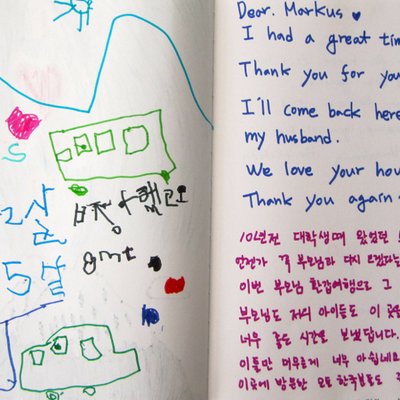 2살
5살
Dear. Markus ♥
I had a great tim
Thank you for you
I'll come back here
my husband.
We love your hou
Thank you again
10년전 대학생때 왔었던
언젠가 꼭 부모님과 다시 오겠다는
이번 부모님 환갑여행으로 그
부모님도 저희 아이들도 이
너무 좋은 시간을 보냈답니다.
이틀만 머무는게 너무 아쉽네요
이곳에 방문한 모든 한국분들도